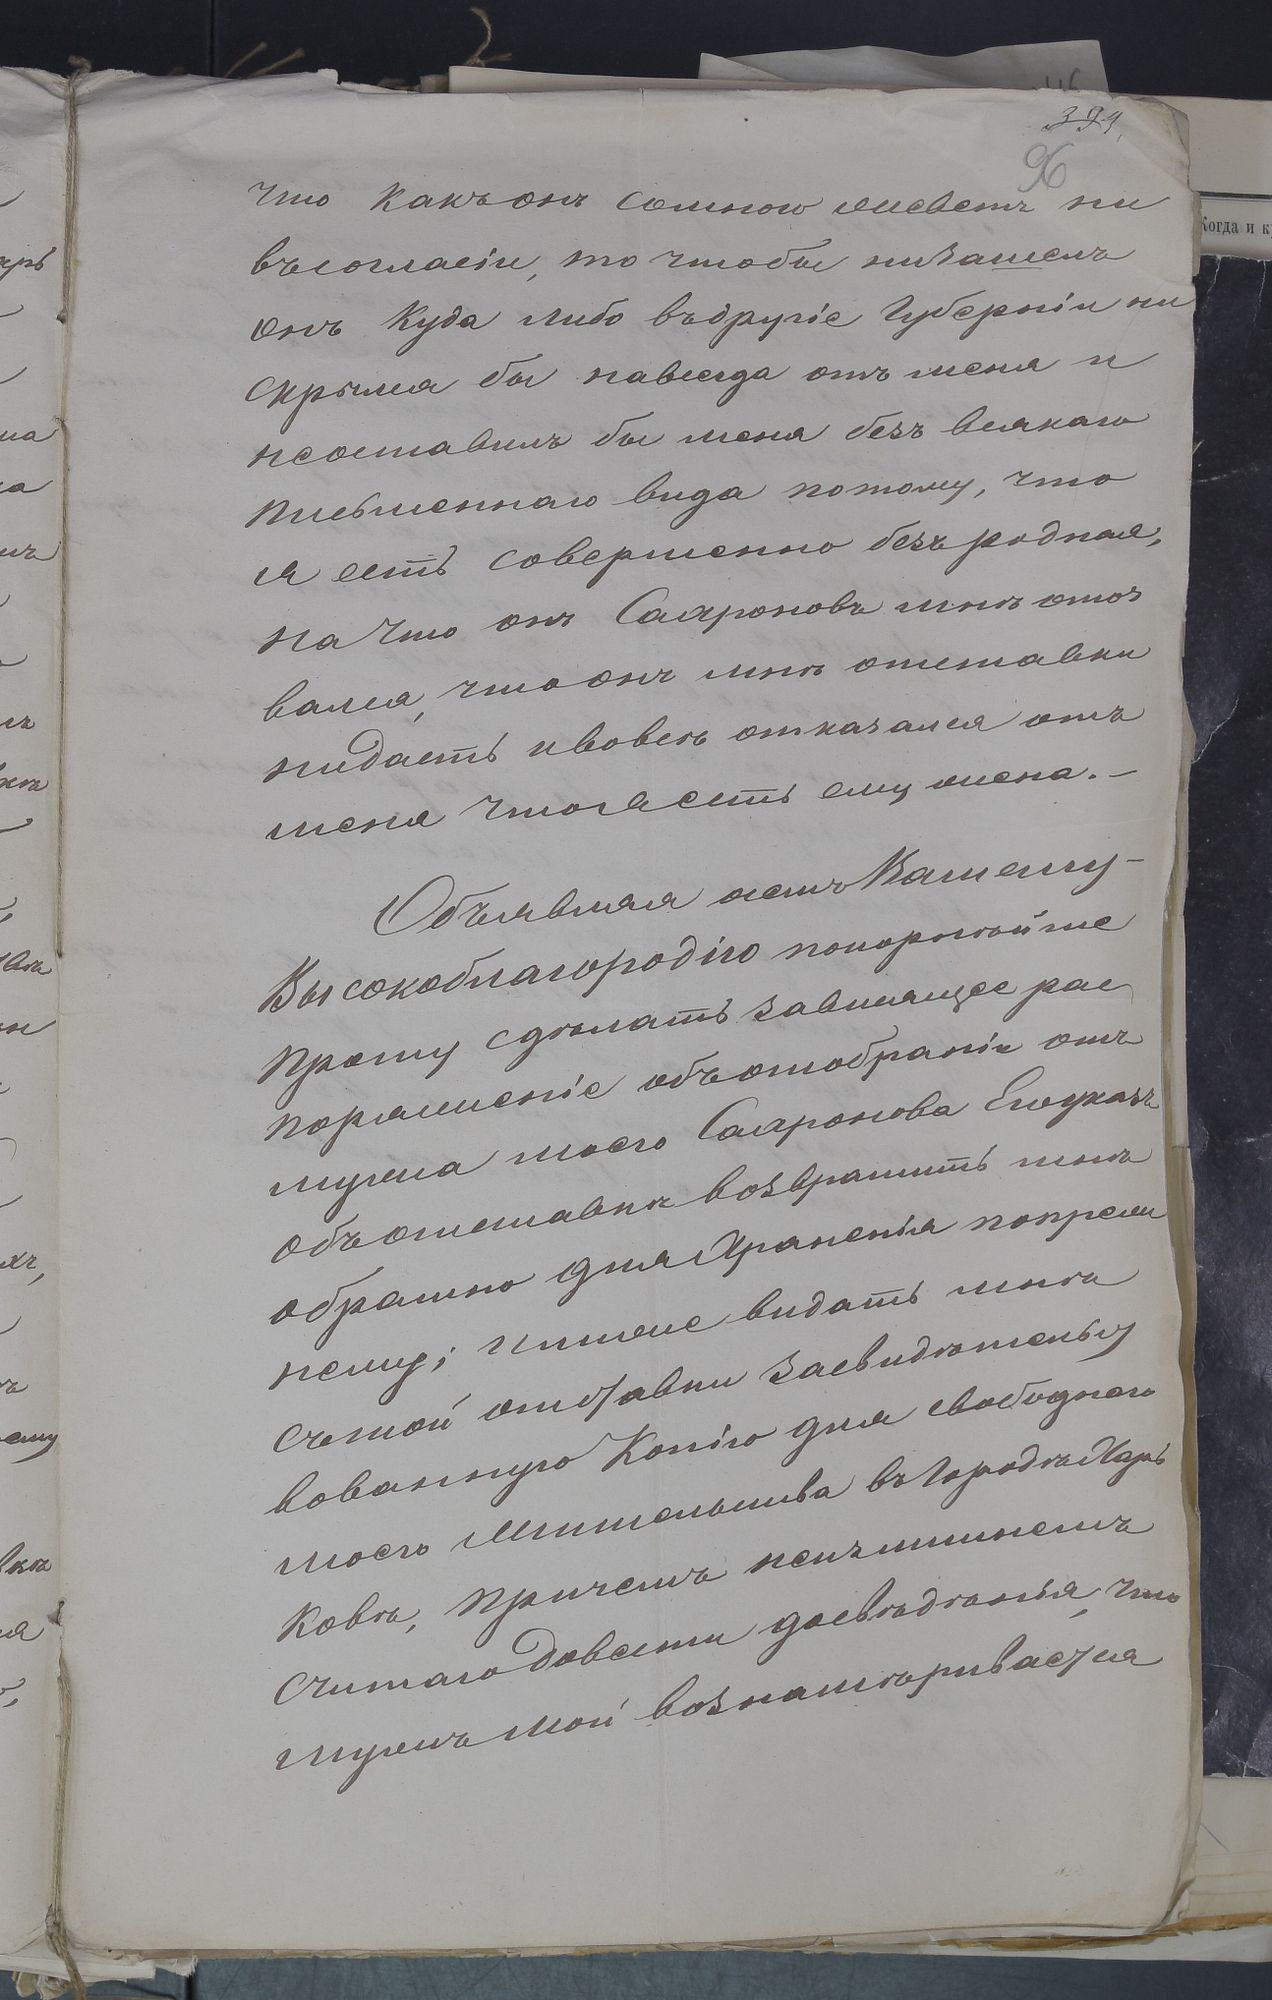 399.
96
что какъ онъ сомною живетъ ни
въсогласіи, то чтобы низашелъ
онъ куда либо въдругіе Губерніи ни
скрылся бы навсегда отъ меня и
неоставилъ бы меня безъ всякаго
письменнаго вида потому, что
я есть совершенно безъ родная,
на что онъ Сапроновъ мнѣ отоз
вался, что онъ мнѣ отставки
нидастъ ивовсѣ отказался отъ
меня чтоя есть ему жена.—
Объявляя жемъ Вашему-
Высокоблагородію покорнѣйше
прошу сдѣлать зависящее рас
поряженіе объотобраніи отъ
мужа моего Сапронова Егоуказъ
объотставкѣ возвратить мнѣ
обратно для храненія попреж
нему; итакже видать мнѣ
сътой отставки засвидѣтельст
вованную Копію для свободнаго
моего Жительства въгородѣ Харь
ковѣ, причемъ неизлишнемъ
считаю довести досвѣдѣнія, что
мужъ мой вознамѣривается
Когда и к